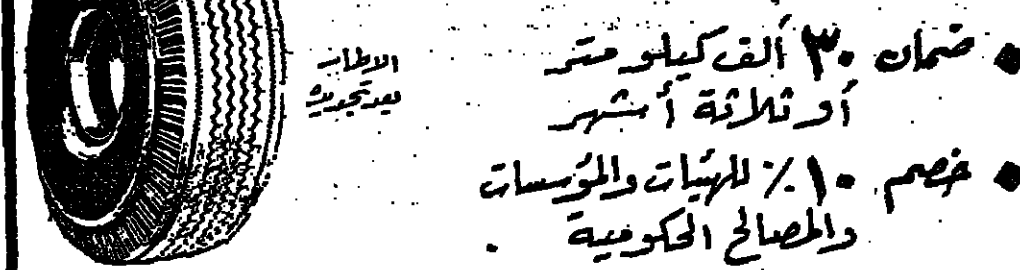 ● ضمان ٣٠ ألف كيلو متر
أو ثلاثة أشهر
● خصم ١٠٪ للهيئات والمؤسسات
والمصالح الحكومية .
الاطار
بعد تجديده